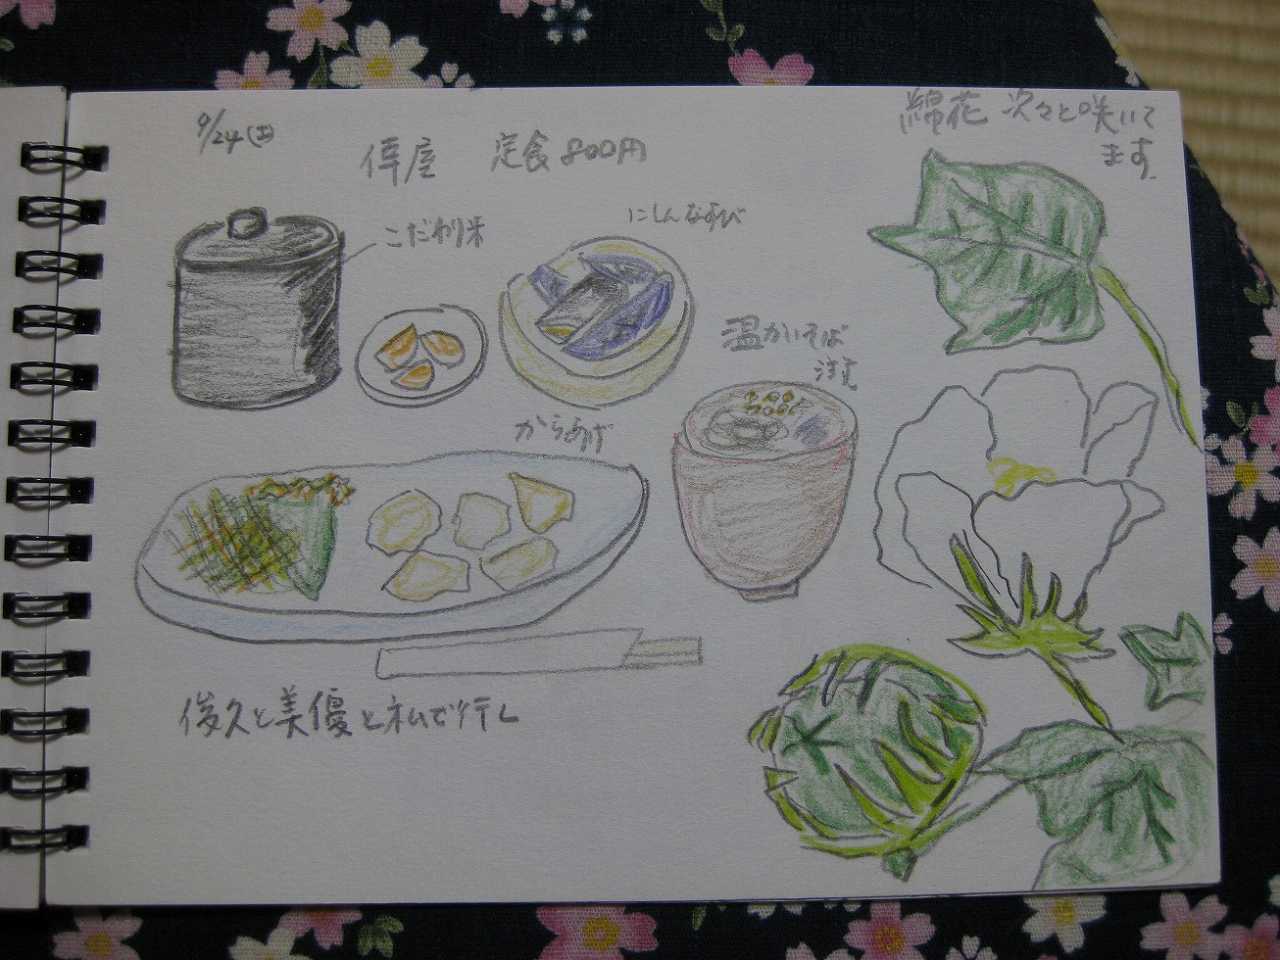 9/24(土)
俥屋 定食800円
綿花 次々と咲いて
ます.
こだわり米
にしんなすび
温かいそば
からあげ
俊久と美優と私で行し